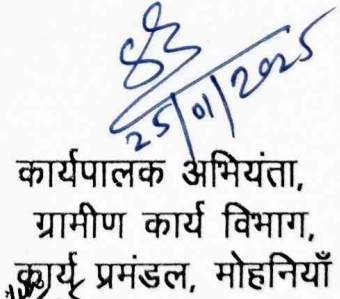 25/01/2025
कार्यपालक अभियंता,
ग्रामीण कार्य विभाग,
कार्य प्रमंडल, मोहनियाँ